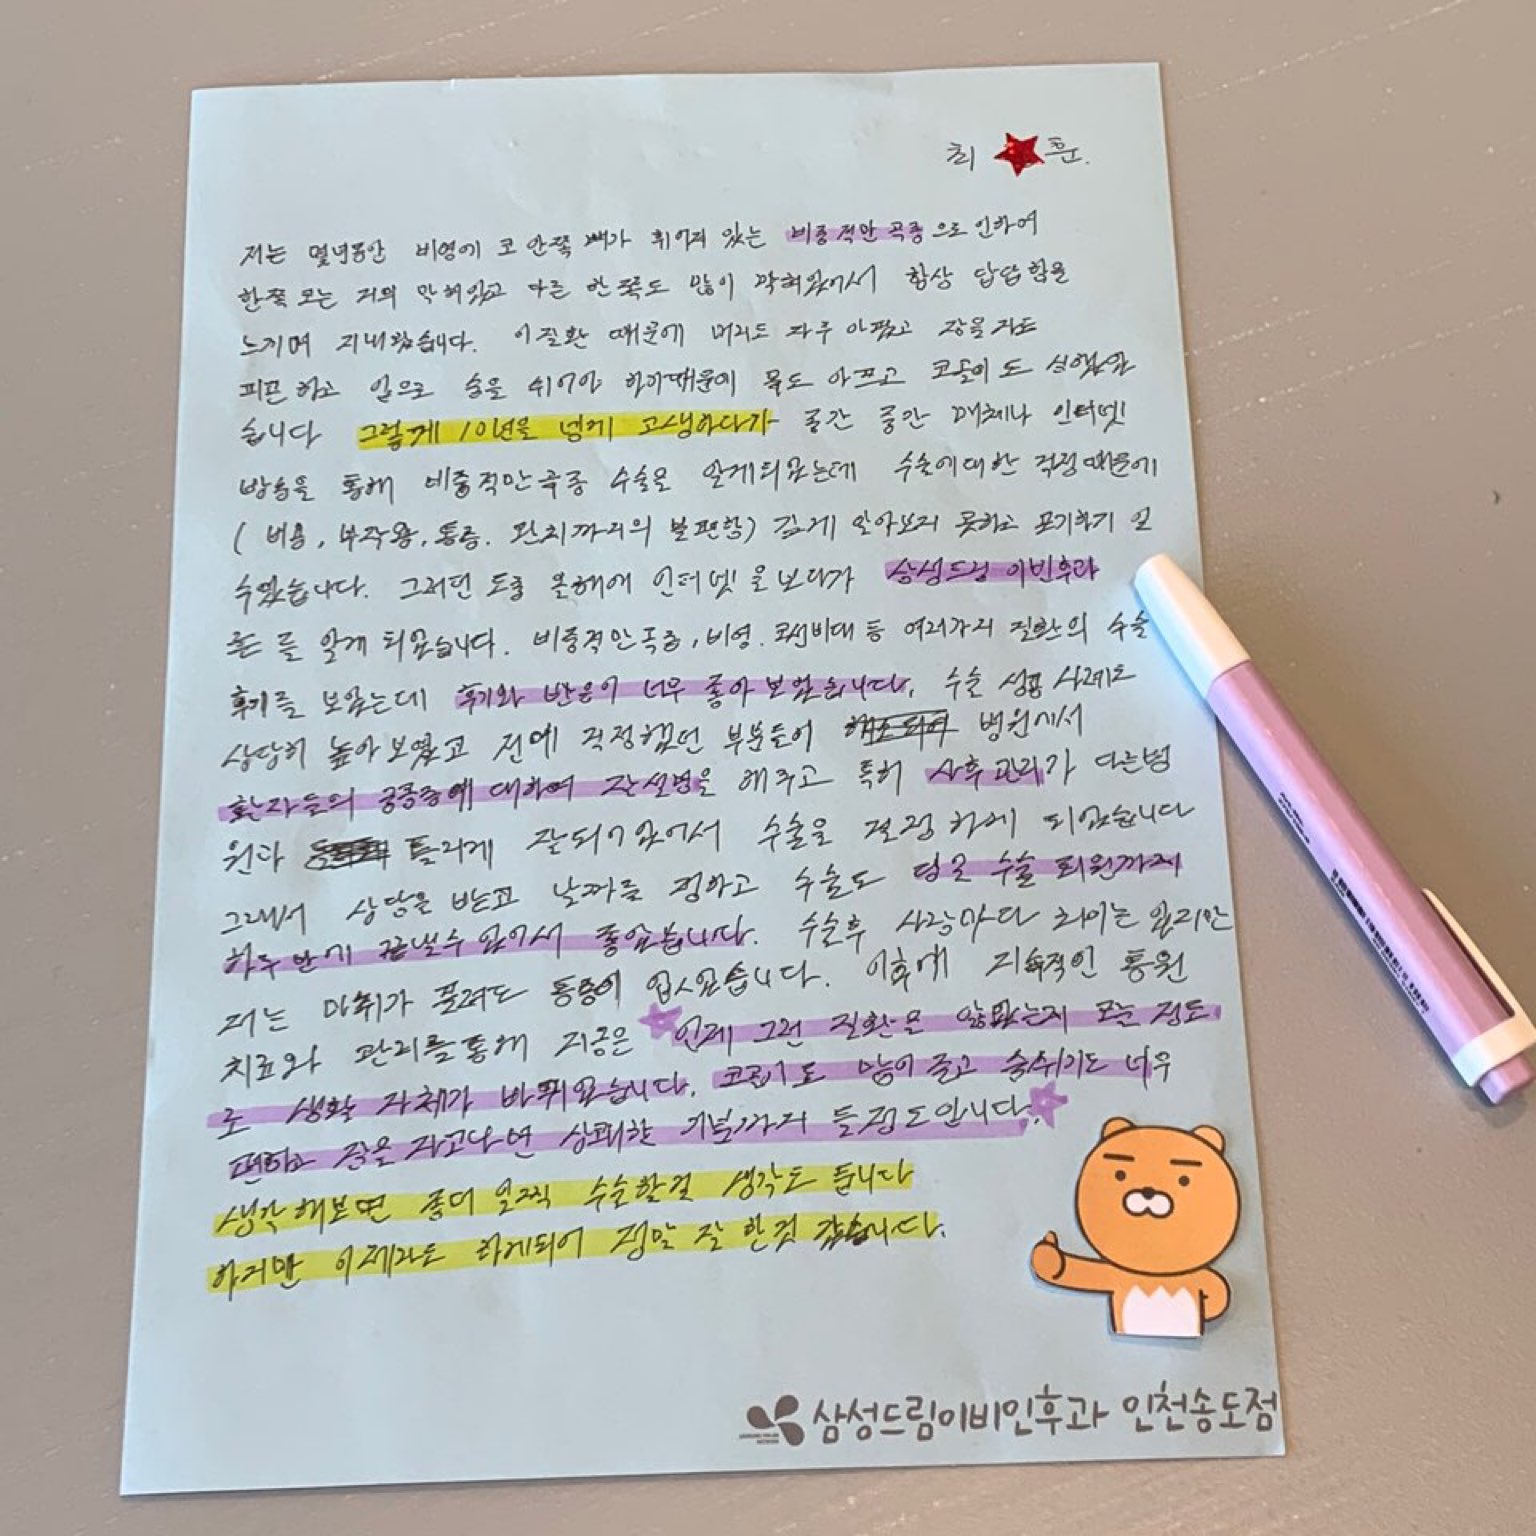 최 훈.
저는 몇년동안 비염에 코 안쪽 뼈가 휘어져 있는 비중적만곡증으로 인하여
한쪽 코는 거의 막혀있고 다른 한쪽도 많이 막혀있어서 항상 답답함을
느끼며 지내왔습니다. 이질환 때문에 머리도 자주 아팠고 잠을 자도
피곤하고 입으로 숨을 쉬어야 하기때문에 목도 아프고 코골이도 심했었
습니다 그렇게 10년을 넘게 고생하다가 중간 중간 매체나 인터넷
방송을 통해 비중적만곡증 수술을 알게되었는데 수술에대한 걱정때문에
( 비용, 부작용, 통증. 완치까지의 불편함) 깊게 알아보지 못하고 포기하기 일
수였습니다. 그러던 도중 올해에 인터넷을보다가 삼성드림 이빈후과
를 알게 되었습니다. 비중적만곡증, 비염. 코선비대 등 여러가지 질환의 수술
후기를 보았는데 후기와 반응이 너무 좋아 보였습니다. 수술 성공 사례도
상당히 높아보였고 전에 걱정했던 부분들이 병원에서
환자들의 궁금증에 대하여 잘설명을 해주고 특히 사후관리가 다른병
원과 틀리게 잘되어있어서 수술을 결정하게 되었습니다
그래서 상담을 받고 날짜를 정하고 수술도 당일 수술 퇴원까지
하루만에 끝낼수있어서 좋았습니다. 수술후 사람마다 차이는 있지만
저는 마취가 풀려도 통증이 없었습니다. 이후에 지속적인 통원
치료와 관리를통해 지금은 언제 그런 질환을 앓았는지 모를정도
로 생활 자체가 바뀌었습니다. 코골이도 많이 줄고 숨쉬기도 너무
편하고 잠을 자고나면 상쾌한 기분까지 들정도입니다.
생각해보면 좀더 일찍 수술할걸 생각도 듭니다
하지만 이제라도 하게되어 정말 잘 한것 같습니다.
삼성드림이비인후과 인천송도점